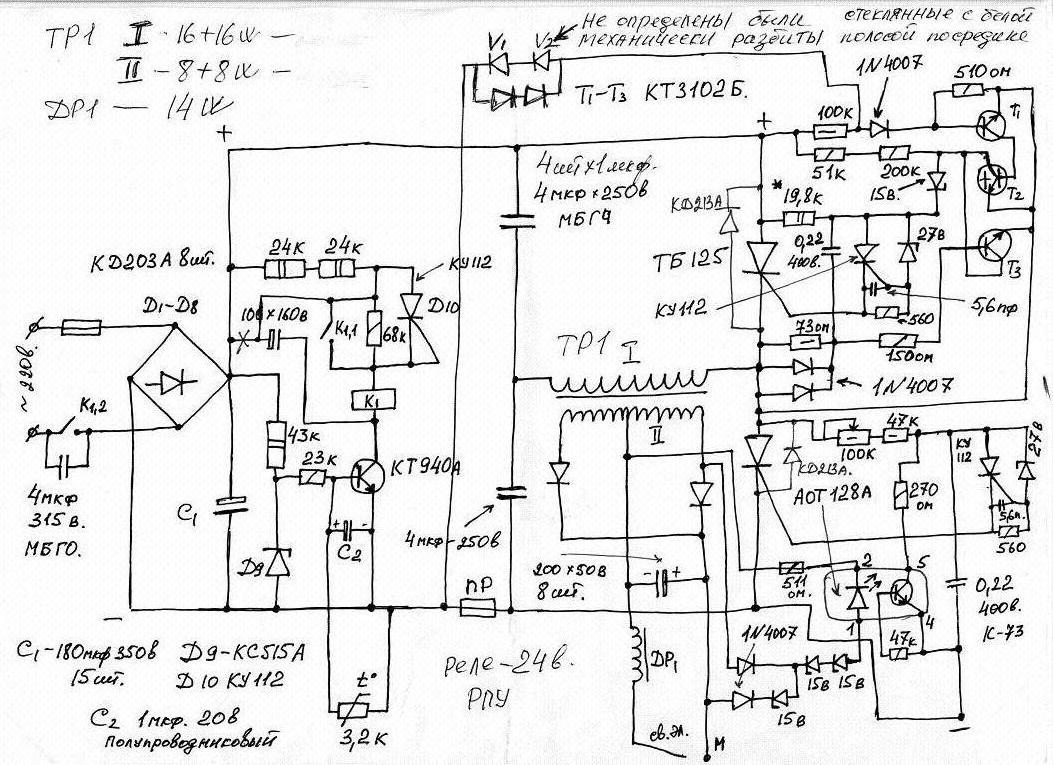 ТР1 I - 16+16W -
II - 8+8W -
ДР1 — 14W
Не определены были стеклянные с белой
механически разбиты полосой посредине
V1 V2
T1-T3 КТ3102Б.
1N4007
510 ом
T1
100к
51к
200к
15В.
T2
+
+
4шт×1мкф.
4мкф×250в
МБГЧ
*
КД213А
19,8к
0,22
400в.
27в
T3
ТБ125
КУ112
5,6пф
560
73ом
150ом
1N4007
КД203А 8шт.
Д1-Д8
24к 24к
КУ112
Д10
100×160в
К1,1
68к
К1
~ 220в
К1,2
4мкф
315в.
МБГО.
43к
23к
КТ940А
С1
+ -
С2
Д9
4мкф-250в
ПР
ТР1 I
II
200×50в
8шт.
- +
КД213А.
100к
47к
КУ
112
27в
АОТ128А
270
ом
5,6п.
560
511
ом.
2
5
1
4
47к
0,22
400в.
К-73
1N4007
15в 15в
15в
ДР1
св.эл.
М
—
С1-180мкф350в Д9-КС515А
15шт. Д10 КУ112
С2 1мкф. 20в
полупроводниковый
t°
3,2к
Реле-24в.
РПУ